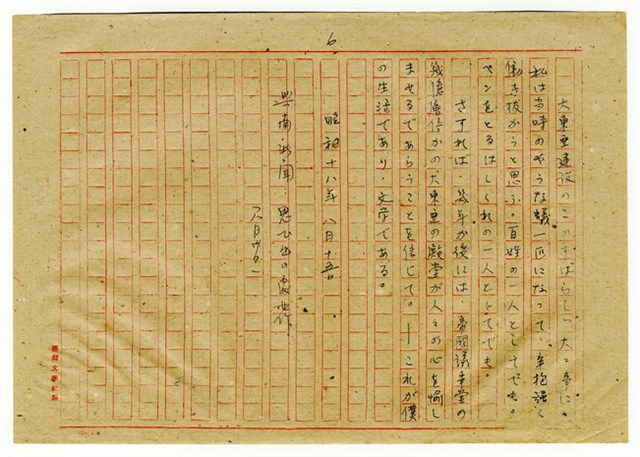 6
大東亜建設のこのすばらしい大工事に、
私は当時のやうな蟻一匹になって、辛抱強く
働き抜かうと思ふ。百姓の一人としてでも。
ペンをとるはしくれの一人としてでも。
さすれば、幾年か後には、帝國議事堂の
幾億倍かの大東亜の殿堂が人々の心を愉し
ませるであらうことを信じて。―これが僕
の生活であり、文学である。
昭和十八年八月十五日
興南新聞・思ひ出の
八月廿